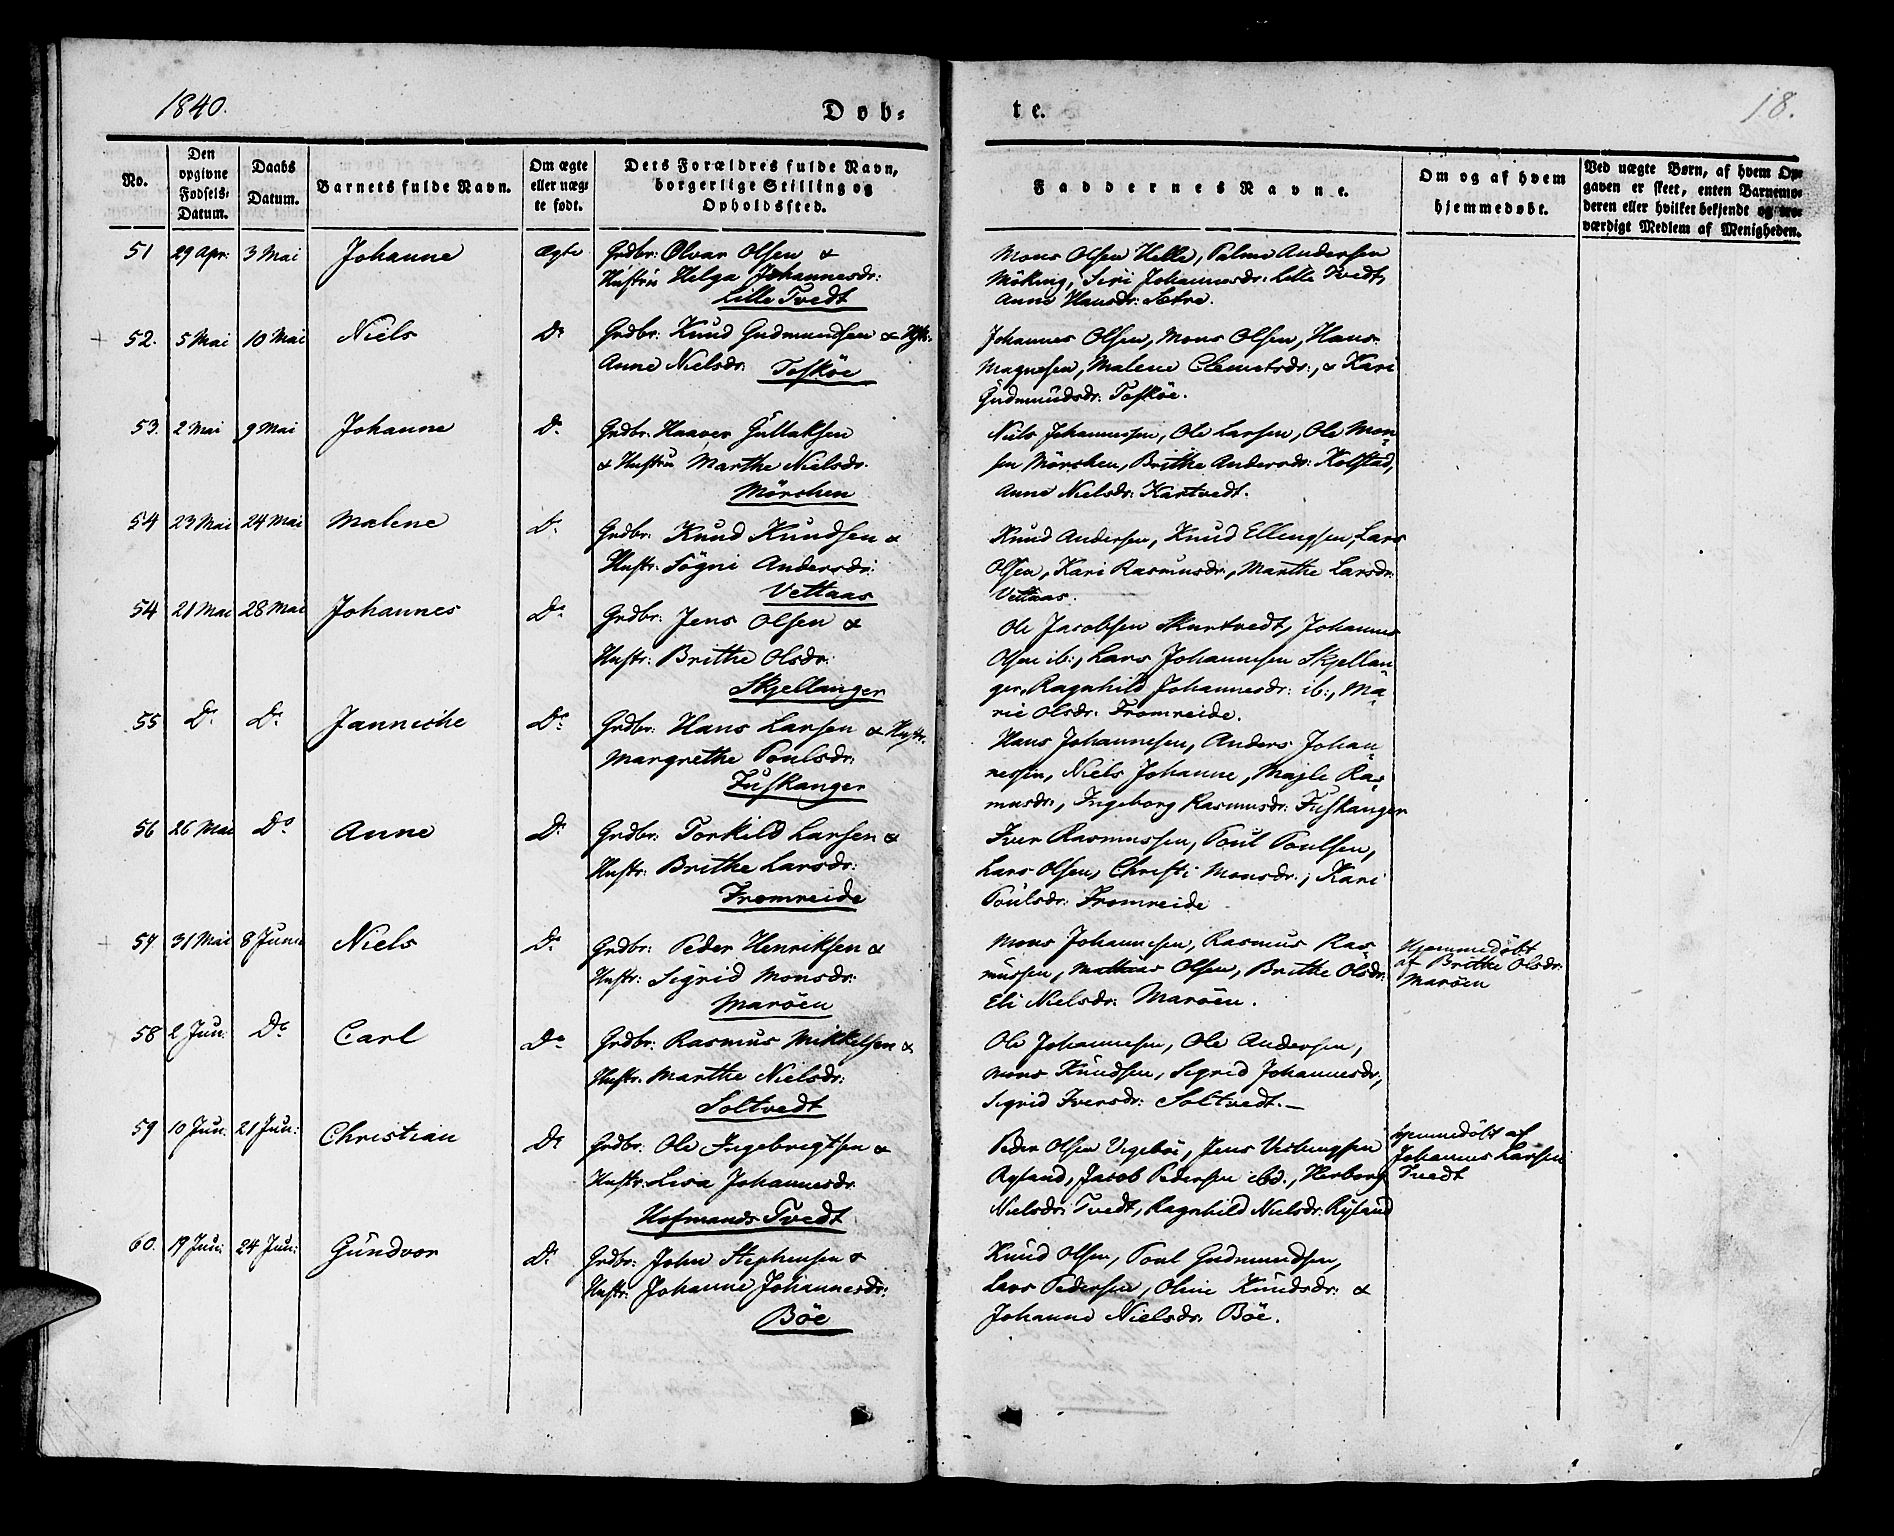 1840.
Døb-
te.
18.
No.
Den opgivne Fødsels-Datum.
Daabs Datum.
Barnets fulde Navn.
Om ægte eller uægte født.
Dets Forældres fulde Navn, borgerlige Stilling og Opholdssted.
Faddernes Navne.
Om og af hvem hjemmedøbt.
Ved uægte Børn, af hvem Opgaven er skeet, enten Barnemoderen eller hvilket bekjendt og troværdigt Medlem af Menigheden.
51 29 Apr: 3 Mai Johanne ægte Grdbr: Olvar Olsen &
Hustru Helga Johannesdr:
Lille Tvedt
Mons Olsen Helle, Palme Andersen
Möking, Siri Johannesdr: Lille Tvedt,
Anne Hansdr: Sætre.
52. 5 Mai 10 Mai Niels Do Grdbr: Knud Gudmundsen & Hstr:
Anne Nielsdr: Toskøe
Johannes Olsen, Mons Olsen, Hans
Magnesen, Malene Clemetsdr:, & Kari
Gudmundsdr: Toskøe.
53. 2 Mai 9 Mai Johanne Do Grdbr: Haaver Gullaksen
& Hustru Marthe Nielsdr:
Mörchen
Niels Johannessen, Ole Larsen, Ole Mon-
sen Mörchen, Brithe Andersdr: Kolstad,
Anne Nielsdr: Kartvedt.
54 23 Mai 24 Mai Malene Do Grdbr: Knud Knudsen &
Hustr: Sögni Andersdr:
Vettaas
Knud Andersen, Knud Ellingsen, Lars
Olsen, Kari Rasmusdr:, Marthe Larsdr:
Vettaas.
54 21 Mai 28 Mai Johannes Do Grdbr: Jens Olsen &
Hustr: Brithe Olsdr:
Skjellanger
Ole Jacobsen Skurtvedt, Johannes
Olsen ib:, Lars Johannesen Skjellan-
ger, Ragnhild Johannesdr: ib:, Ma-
rie Olsdr: Fromreide.
55 Do Do Janniche Do Grdbr: Hans Larsen & Hustr:
Margrethe Poulsdr:
Fuskanger
Hans Johannesen, Anders Johan-
nessen, Niels Johanne, Magle Ras-
musdr:, Ingeborg Rasmusdr: Fuskanger
56 26 Mai Do Anne Do Grdbr: Torkild Larsen &
Hustr: Brithe Larsdr:
Fromreide
Iver Rasmussen, Poul Poulsen,
Lars Olsen, Christi Monsdr:, Kari
Poulsdr: Fromreide
57 31 Mai 8 Juni Niels Do Grdbr: Peder Henriksen &
Hustr: Sigrid Monsdr:
Marøen
Mons Johannesen, Rasmus Ras-
mussen, Mathias Olsen, Brithe Olsdr:
Eli Nielsdr: Marøen.
Hjemmedøbt
af Brithe Olsdr:
Marøen
58 2 Jun: Do Carl Do Grdbr: Rasmus Mikkelsen &
Hustr: Marthe Nielsdr:
Soltvedt
Ole Johannesen, Ole Andersen,
Mons Knudsen, Sigrid Johannesdr:,
Sigrid Iversdr: Soltvedt.—
59 10 Jun: 21 Jun: Christian Do Grdbr: Ole Ingebrigtsen &
Hustr: Lisa Johannesdr:
Hofmands Tvedt
Peder Olsen Vigebø, Jens
Ryland, Jacob Pedersen ibd., Herborg
Nielsdr: Tvedt, Ragnhild Nielsdr: Ryland
Hjemmedøbt af
Johannes Larsen
Tvedt
60. 19 Jun: 24 Jun: Gundvor Do Grdbr: John Stephensen &
Hustr: Johanne Johannesdr:
Bøe
Knud Olsen, Poul Gudmundsen,
Lars Pedersen, Oline Knudsdr: &
Johanne Nielsdr: Bøe.